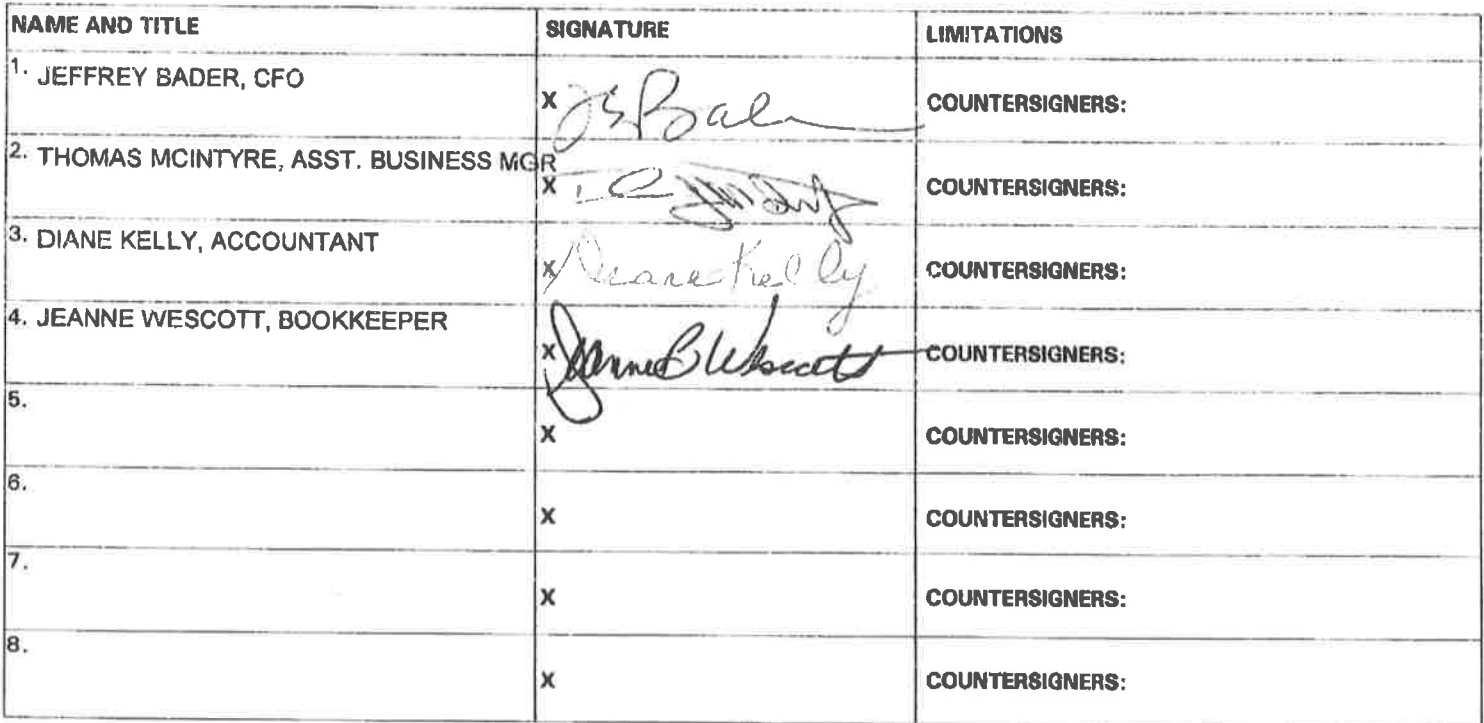 NAME AND TITLE SIGNATURE LIMITATIONS
1. JEFFREY BADER, CFO
X COUNTERSIGNERS:
2. THOMAS MCINTYRE, ASST. BUSINESS MGR
X COUNTERSIGNERS:
3. DIANE KELLY, ACCOUNTANT
X Diane Kelly COUNTERSIGNERS:
4. JEANNE WESCOTT, BOOKKEEPER
X Jeanne B Wescott COUNTERSIGNERS:
5.
X COUNTERSIGNERS:
6.
X COUNTERSIGNERS:
7.
X COUNTERSIGNERS:
8.
X COUNTERSIGNERS: